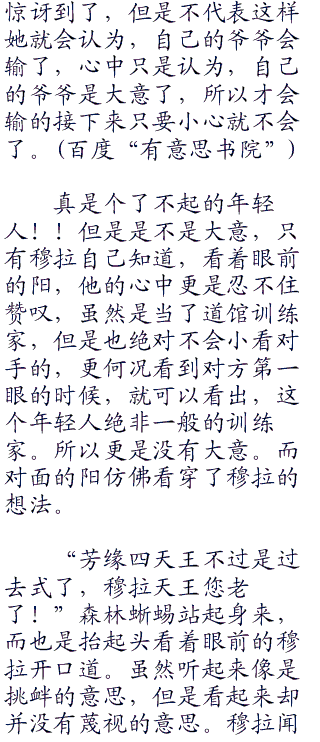 惊讶到了，但是不代表这样
她就会认为，自己的爷爷会
输了，心中只是认为，自己
的爷爷是大意了，所以才会
输的接下来只要小心就不会
了。(百度“有意思书院”)
真是个了不起的年轻
人！！但是是不是大意，只
有穆拉自己知道，看着眼前
的阳，他的心中更是忍不住
赞叹，虽然是当了道馆训练
家，但是也绝对不会小看对
手的，更何况看到对方第一
眼的时候，就可以看出，这
个年轻人绝非一般的训练
家。所以更是没有大意。而
对面的阳仿佛看穿了穆拉的
想法。
“芳缘四天王不过是过
去式了，穆拉天王您老
了！”森林蜥蜴站起身来，
而也是抬起头看着眼前的穆
拉开口道。虽然听起来像是
挑衅的意思，但是看起来却
并没有蔑视的意思。穆拉闻